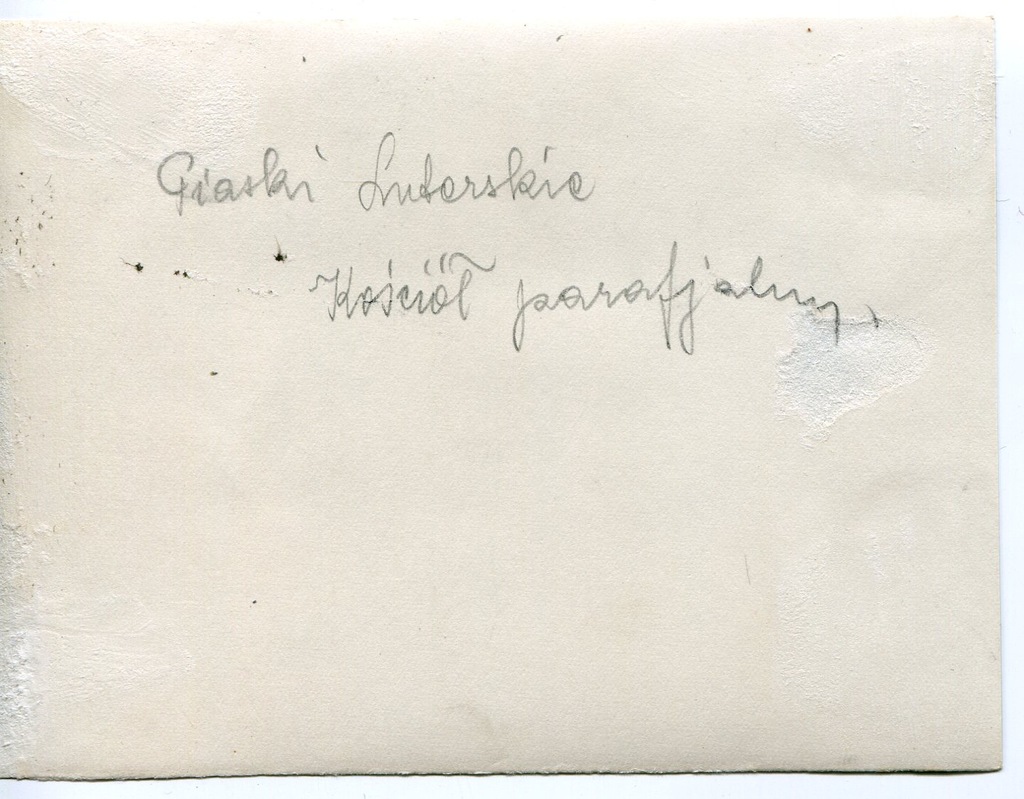 Piaski Luterskie
Kościół parafjalny.